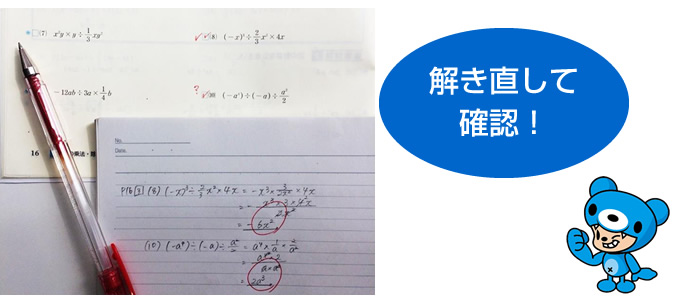 (7) x²y×y÷1/3xy²
(8) (-x)³÷2/3x²×4x
-12ab÷3a×1/4b
? (10) (-a⁴)÷(-a)÷a²/2
16
No.
Date
P16 [3] (8) (-x)³÷2/3x²×4x = -x³×3/2x²×4x
= -x³×3×4x/2x²
= -6x²
(10) (-a⁴)÷(-a)÷a²/2 = a⁴×1/a×2/a²
= a⁴×2/a×a²
= 2a
解き直して
確認！